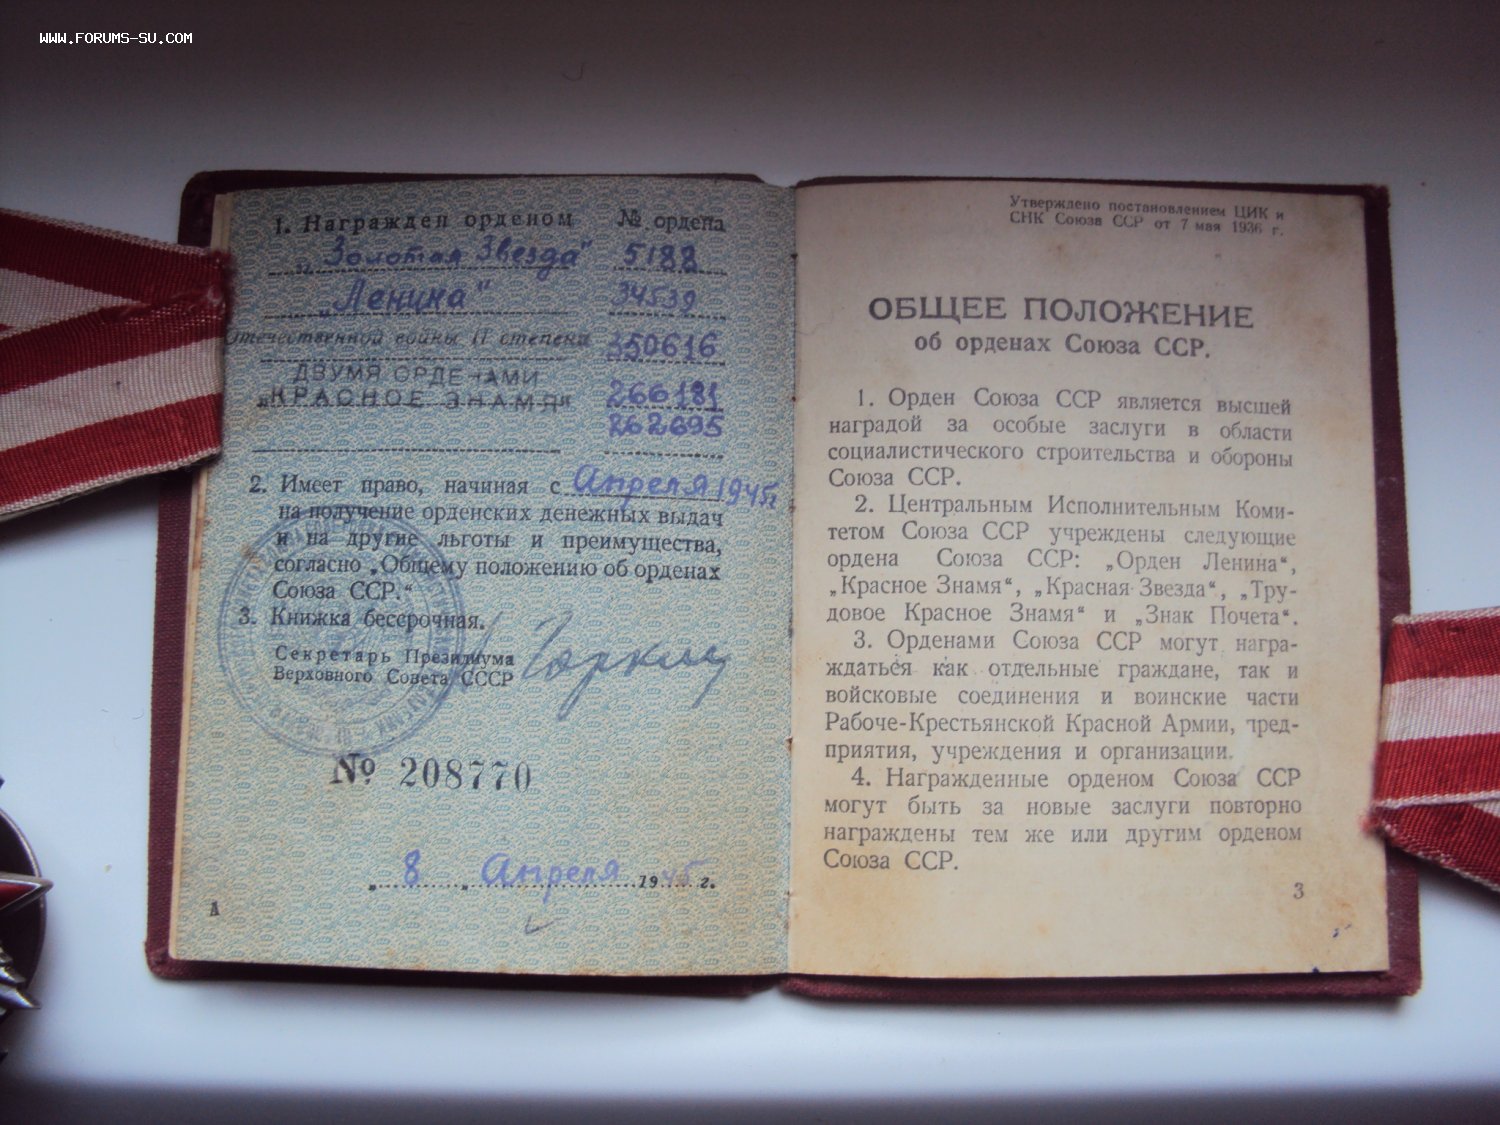 WWW.FORUMS-SU.COM
1. Награжден орденом № ордена
„Золотая Звезда" 5188
„Ленина" 34539
Отечественной войны II степени 350616
ДВУМЯ ОРДЕНАМИ
„КРАСНОЕ ЗНАМЯ" 266181
262695
2. Имеет право, начиная с Апреля 1945г
на получение орденских денежных выдач
и на другие льготы и преимущества,
согласно „Общему положению об орденах
Союза ССР.“
3. Книжка бессрочная.
Секретарь Президиума
Верховного Совета СССР Горкин
№ 208770
„ 8 „ Апреля 1945 г.
А
Утверждено постановлением ЦИК и
СНК Союза ССР от 7 мая 1936 г.
ОБЩЕЕ ПОЛОЖЕНИЕ
об орденах Союза ССР.
1. Орден Союза ССР является высшей
наградой за особые заслуги в области
социалистического строительства и обороны
Союза ССР.
2. Центральным Исполнительным Коми-
тетом Союза ССР учреждены следующие
ордена Союза ССР: „Орден Ленина“,
„Красное Знамя“, „Красная Звезда“, „Тру-
довое Красное Знамя“ и „Знак Почета“.
3. Орденами Союза ССР могут награ-
ждаться как отдельные граждане, так и
войсковые соединения и воинские части
Рабоче-Крестьянской Красной Армии, пред-
приятия, учреждения и организации.
4. Награжденные орденом Союза ССР
могут быть за новые заслуги повторно
награждены тем же или другим орденом
Союза ССР.
3